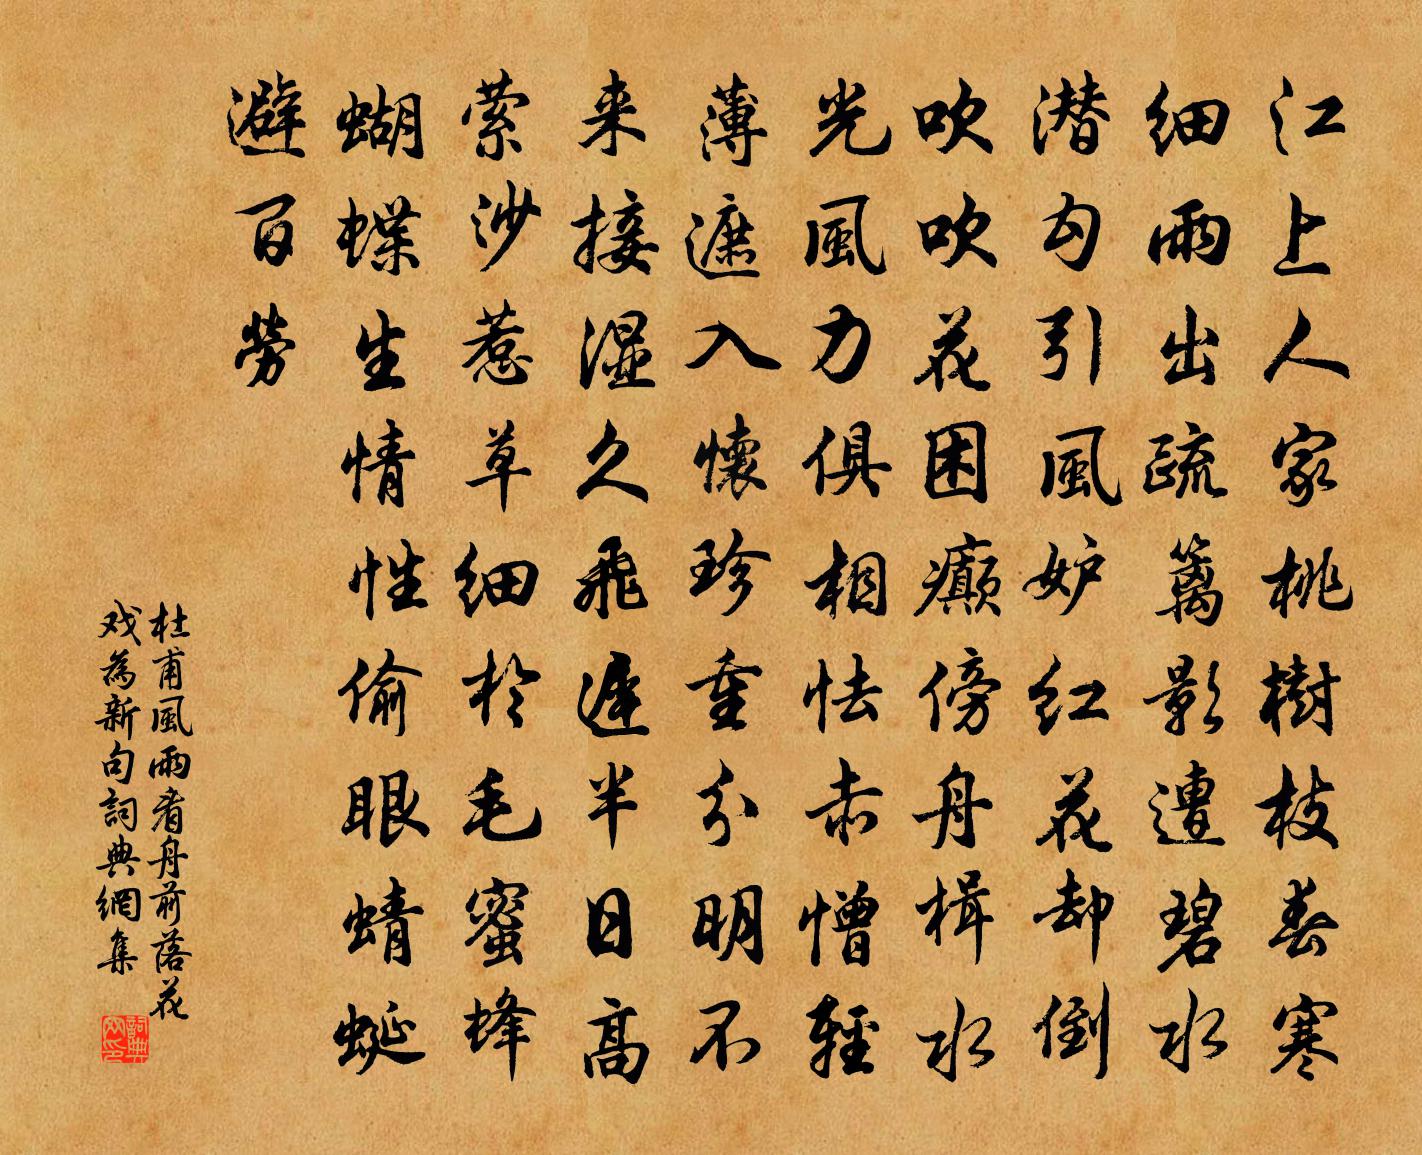 江上人家桃樹枝春寒
细雨出疏篱影遭碧水
潜勾引風妒红花却倒
吹吹花困癲傍舟楫水
光風力俱相怯赤憎輕
薄遮入懷珍重分明不
来接湿久飛遲半日高
萦沙惹草细於毛蜜蜂
蝴蝶生情性偷眼蜻蜓
避百勞
杜甫風雨看舟前落花
戏為新句詞典網集
詞典
网印